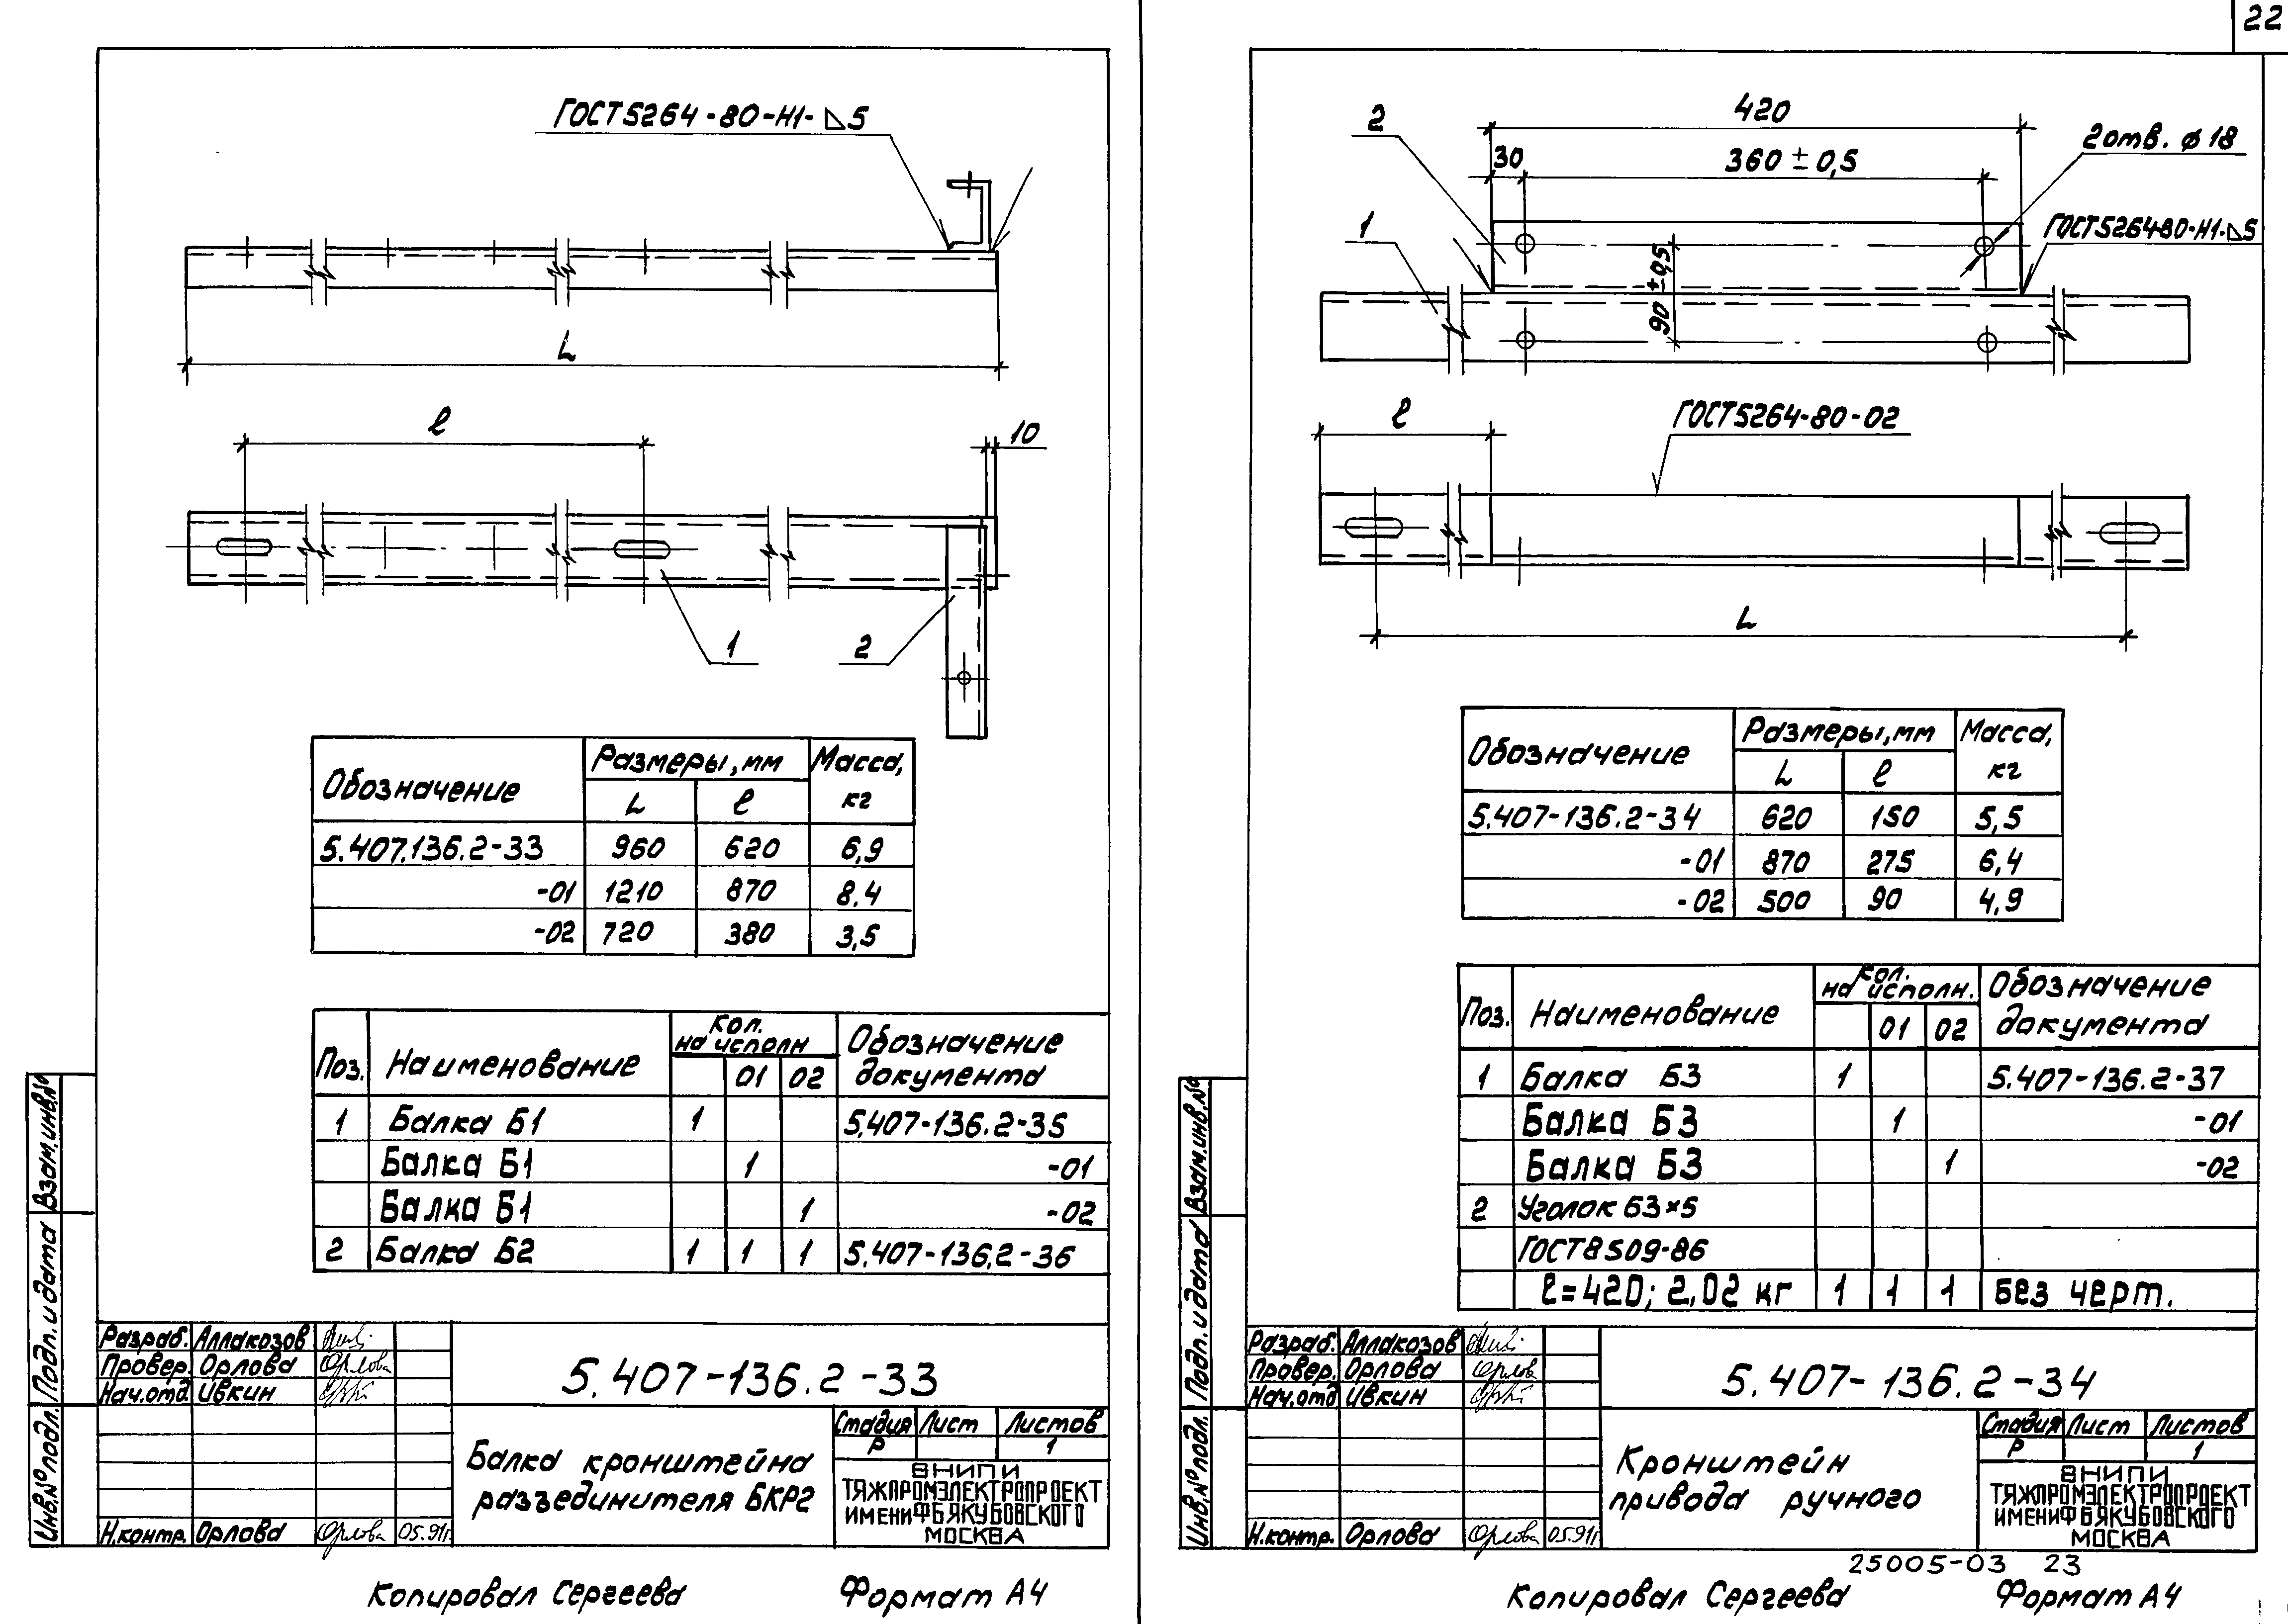 22
ГОСТ5264-80-Н1-◺5
L
ℓ
10
1
2
Обозначение
Размеры, мм
Масса, кг
L
ℓ
5.407.136.2-33 960 620 6,9
-01 1210 870 8.4
-02 720 380 3,5
Поз.
Наименование
Кол.
на исполн
01 02
Обозначение
документа
1 Балка Б1 1 5.407-136.2-35
Балка Б1 1 -01
Балка Б1 1 -02
2 Балка Б2 1 1 1 5.407-136.2-36
Взам.инв.№
Подп. и дата
Инв.№ подл.
Разраб. Аллакозов
Провер. Орлова Орлова
Нач.отд Ивкин
Н.контр. Орлова Орлова 05.91г.
5.407-136.2-33
Балка кронштейна
разъединителя БКР2
Стадия Лист Листов
Р 1
ВНИПИ
ТЯЖПРОМЭЛЕКТРОПРОЕКТ
ИМЕНИ Ф.Б.ЯКУБОВСКОГО
МОСКВА
Копировал Сергеева Формат А4
420
2
30
360 ± 0,5
2 отв. ϕ 18
1
ГОСТ5264-80-Н1-◺5
90 ± 0,5
ℓ
ГОСТ5264-80-02
L
Обозначение
Размеры, мм
Масса,
кг
L
ℓ
5.407-136.2-34 620 150 5,5
-01 870 275 6,4
-02 500 90 4,9
Поз.
Наименование
Кол.
на исполн.
01 02
Обозначение
документа
1 Балка Б3 1 5.407-136.2-37
Балка Б3 1 -01
Балка Б3 1 -02
2 Уголок 63×5
ГОСТ8509-86
ℓ=420; 2,02 кг 1 1 1 Без черт.
Взам.инв.№
Подп. и дата
Инв.№ подл.
Разраб. Аллакозов
Провер. Орлова Орлова
Нач.отд Ивкин
Н.контр. Орлова Орлова 05.91г
5.407-136.2-34
Кронштейн
привода ручного
Стадия Лист Листов
Р 1
ВНИПИ
ТЯЖПРОМЭЛЕКТРОПРОЕКТ
ИМЕНИ Ф.Б.ЯКУБОВСКОГО
МОСКВА
25005-03 23
Копировал Сергеева Формат А4